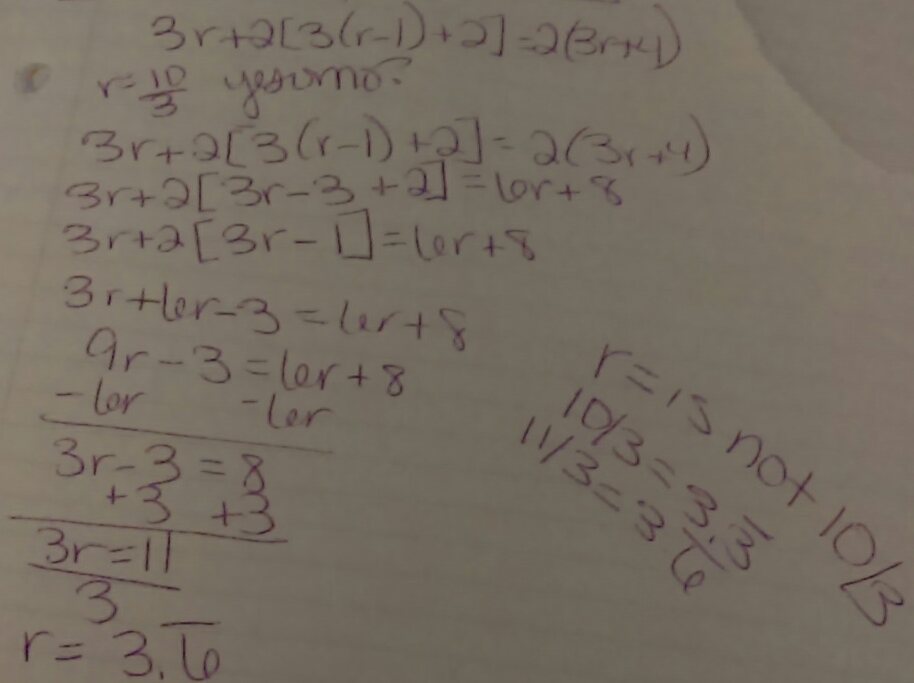 3r+2[3(r-1)+2]=2(3r+4)
r=10/3 yes or no?
3r+2[3(r-1)+2]=2(3r+4)
3r+2[3r-3+2]=6r+8
3r+2[3r-1]=6r+8
3r+6r-3=6r+8
9r-3=6r+8
-6r -6r
3r-3=8
+3 +3
3r=11
3
r=3.6̅
r= is not 10/3
10/3=3.3̅
11/3=3.6̅